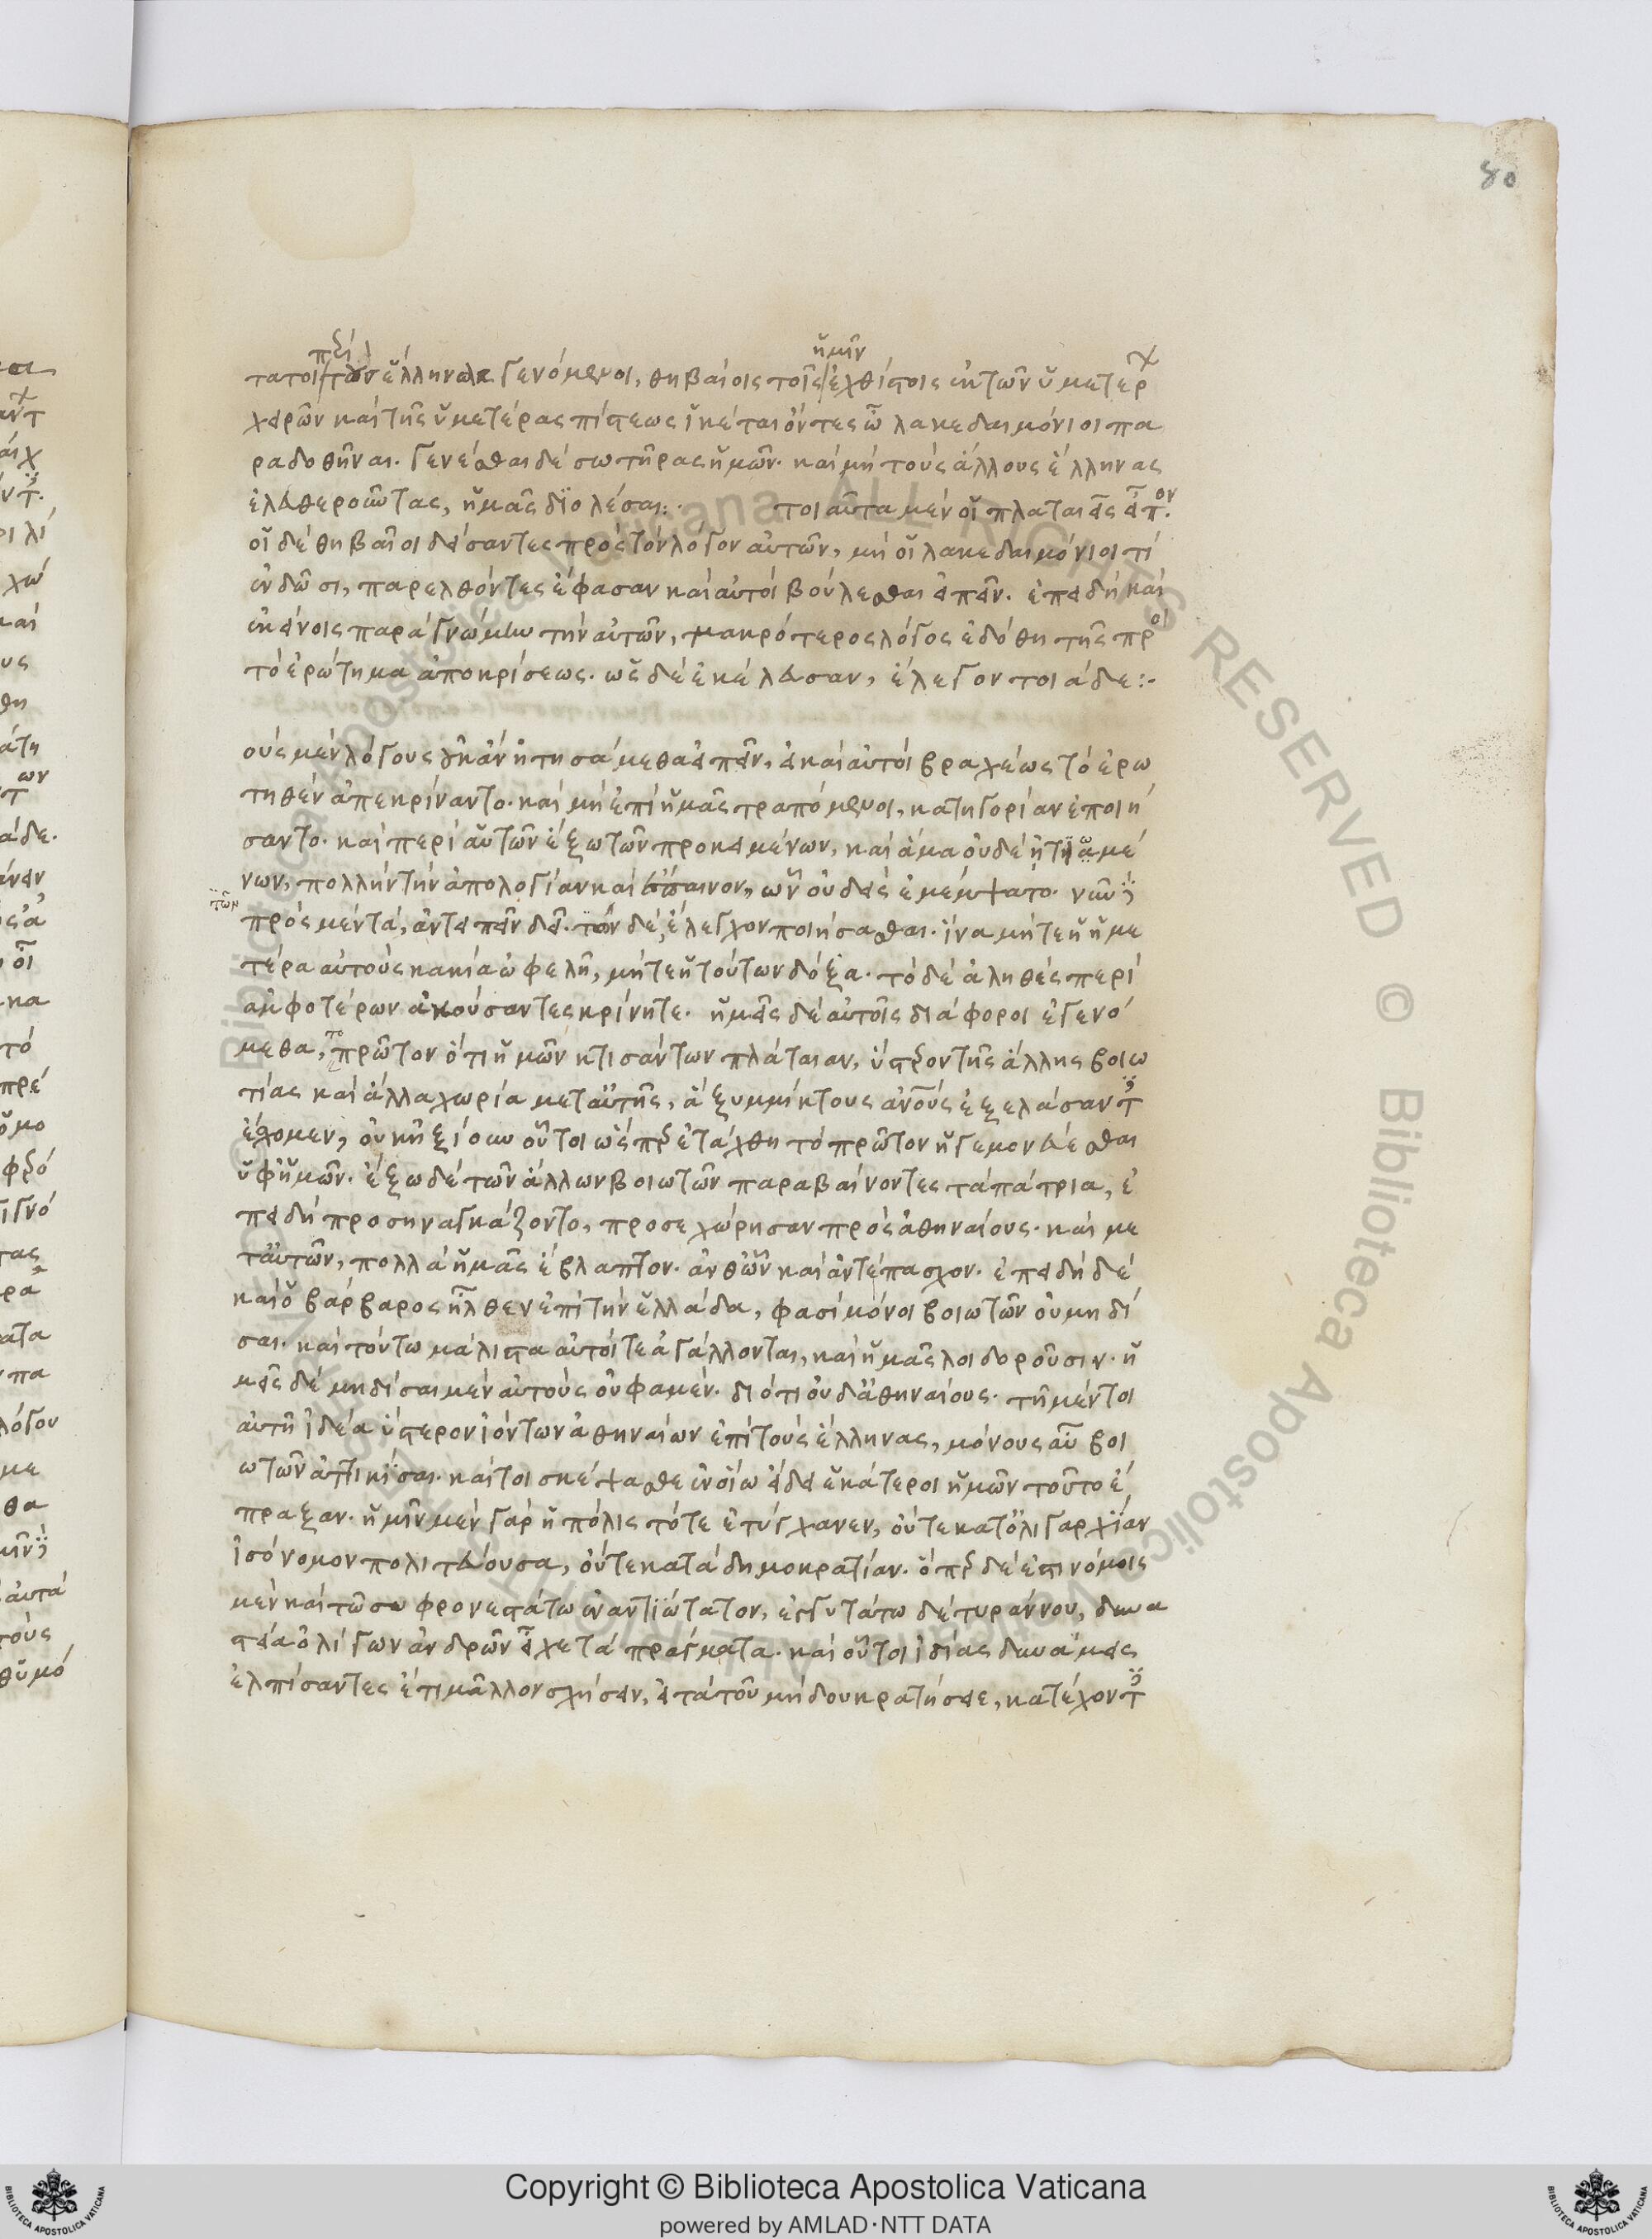 80
τατοι περὶ τοὺς ἕλληνας γενόμενοι, θηβαίοις τοῖς ἡμῖν ἐχθίστοις ἐκ τῶν ὑμετέρων
χειρῶν καὶ τῆς ὑμετέρας πίστεως ἱκέται ὄντες ὦ λακεδαιμόνιοι πα
ραδοθῆναι. γενέσθαι δὲ σωτῆρας ἡμῶν. καὶ μὴ τοὺς ἄλλους ἕλληνας
ἐλευθεροῦντας, ἡμᾶς διολέσαι:· τοιαῦτα μὲν οἱ πλαταιεῖς εἶπον.
οἱ δὲ θηβαῖοι δείσαντες πρὸς τὸν λόγον αὐτῶν, μὴ οἱ λακεδαιμόνιοί τι
ἐνδῶσι, παρελθόντες ἔφασαν καὶ αὐτοὶ βούλεσθαι εἰπεῖν. ἐπειδὴ καὶ
ἐκείνοις παρὰ γνώμην τὴν αὐτῶν, μακρότερος λόγος ἐδόθη τῆς πρὸς
τὸ ἐρώτημα ἀποκρίσεως. ὡς δὲ ἐκέλευσαν, ἔλεγον τοιάδε:·
οὺς μὲν λόγους οὐκ ἂν ἠτησάμεθα εἰπεῖν, εἰ καὶ αὐτοὶ βραχέως τὸ ἐρω
τηθὲν ἀπεκρίναντο. καὶ μὴ ἐπὶ ἡμᾶς τραπόμενοι, κατηγορίαν ἐποιή
σαντο. καὶ περὶ αὑτῶν ἔξω τῶν προκειμένων, καὶ ἅμα οὐδὲ ᾐτιαμέ
νων, πολλὴν τὴν ἀπολογίαν καὶ ἔπαινον, ὧν οὐδεὶς ἐμέμψατο. νῦν δὲ
τῶν
πρὸς μὲν τὰ, ἀντειπεῖν δεῖ. τῶν δὲ, ἔλεγχον ποιήσασθαι. ἵνα μήτε ἡ ἡμε
τέρα αὐτοὺς κακία ὠφελῇ, μήτε ἡ τούτων δόξα. τὸ δὲ ἀληθὲς περὶ
ἀμφοτέρων ἀκούσαντες κρίνητε. ἡμεῖς δὲ αὐτοῖς διάφοροι ἐγενό
μεθα, τὸ πρῶτον ὅτι ἡμῶν κτισάντων πλάταιαν, ὕστερον τῆς ἄλλης βοιω
τίας καὶ ἄλλα χωρία μετ αὐτῆς, ἃ ξυμμίκτους ἀνοὺς ἐξελάσαντες
ἔσχομεν, οὐκ ἠξίουν οὗτοι ὥσπερ ἐτάχθη τὸ πρῶτον ἡγεμονεύεσθαι
ὑφ ἡμῶν. ἔξω δὲ τῶν ἄλλων βοιωτῶν παραβαίνοντες τὰ πάτρια, ἐ
πειδὴ προσηναγκάζοντο, προσεχώρησαν πρὸς ἀθηναίους. καὶ με
τ αὐτῶν, πολλὰ ἡμᾶς ἔβλαπτον. ἀνθ ὧν καὶ ἀντέπασχον. ἐπειδὴ δὲ
καὶ ὁ βάρβαρος ἦλθεν ἐπὶ τὴν ἑλλάδα, φασὶ μόνοι βοιωτῶν οὐ μηδί
σαι. καὶ τούτω μάλιστα αὐτοί τε ἀγάλλονται, καὶ ἡμᾶς λοιδοροῦσιν. ἡ
μεῖς δὲ μηδίσαι μὲν αὐτοὺς οὔ φαμεν. διότι οὐδ ἀθηναίους. τῆ μέντοι
αὐτῆ ἰδέα ὕστερον ἰόντων ἀθηναίων ἐπὶ τοὺς ἕλληνας, μόνους αὖ βοι
ωτῶν ἀττικίσαι. καίτοι σκέψασθε ἐν οἵω εἴδει ἑκάτεροι ἡμῶν τοῦτο ἔ
πραξαν. ἡμῖν μὲν γὰρ ἡ πόλις τότε ἐτύγχανεν, οὔτε κατ ὀλιγαρχίαν
ἰσόνομον πολιτεύουσα, οὔτε κατὰ δημοκρατίαν. ὅπερ δέ ἐστι νόμοις
μὲν καὶ τῶ σωφρονεστάτω ἐναντιώτατον, ἐγγυτάτω δὲ τυράννου, δυνα
στεία ὀλίγων ἀνδρῶν εἶχε τὰ πράγματα. καὶ οὗτοι ἰδίας δυνάμεις
ἐλπίσαντες ἔτι μᾶλλον σχήσειν, εἰ τὰ τοῦ μήδου κρατήσειε, κατέχοντες
Copyright © Biblioteca Apostolica Vaticana
powered by AMLAD·NTT DATA